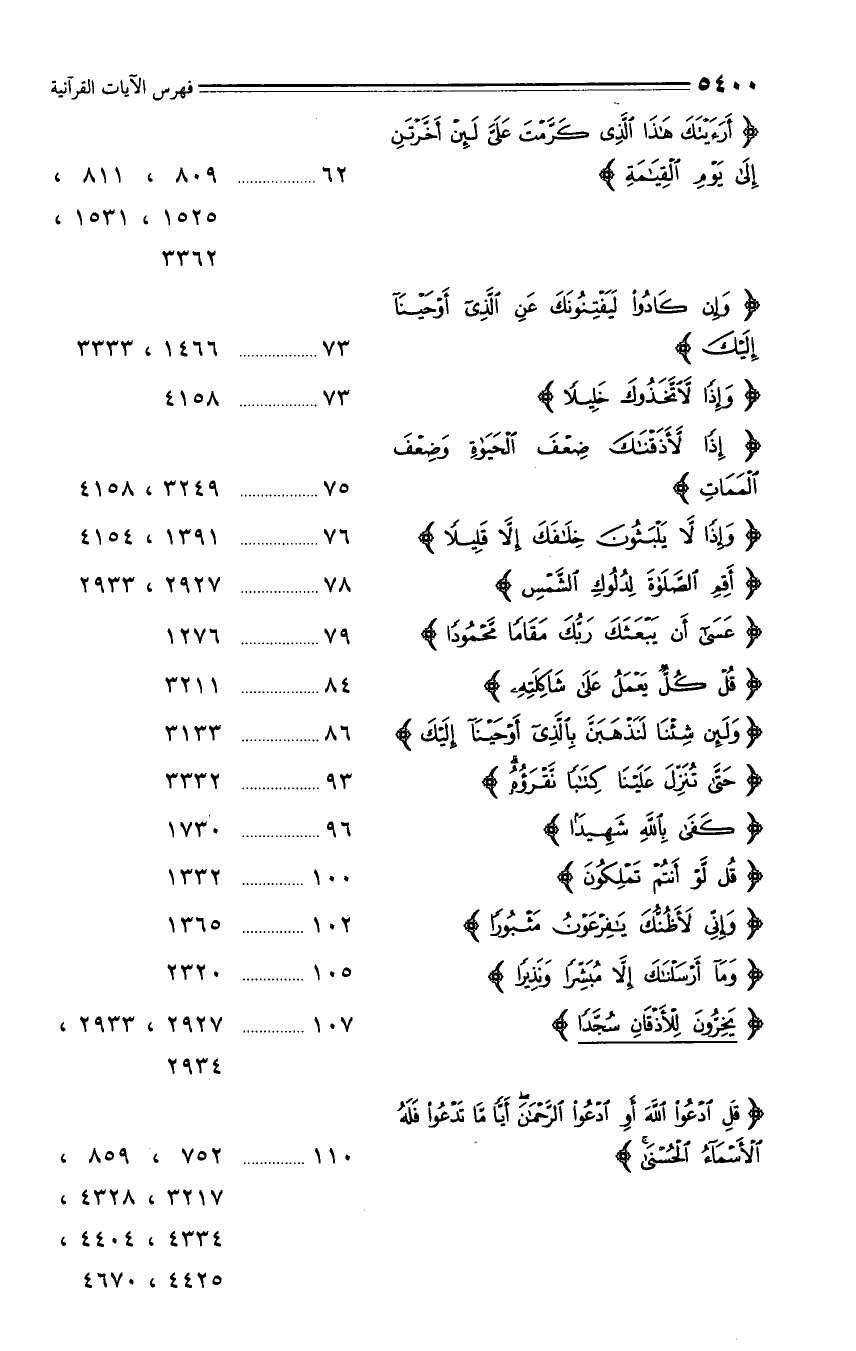 ٥٤٠٠ فهرس الآيات القرآنية
﴿ أَرَءَيْتَكَ هَٰذَا ٱلَّذِى كَرَّمْتَ عَلَىَّ لَئِنْ أَخَّرْتَنِ
إِلَىٰ يَوْمِ ٱلْقِيَٰمَةِ ﴾ ٦٢ ................... ٨٠٩ ، ٨١١ ،
١٥٢٥ ، ١٥٣١ ،
٣٣٦٢
﴿ وَإِن كَادُوا۟ لَيَفْتِنُونَكَ عَنِ ٱلَّذِىٓ أَوْحَيْنَآ
إِلَيْكَ ﴾ ٧٣ ................... ١٤٦٦ ، ٣٣٣٣
﴿ وَإِذًا لَّٱتَّخَذُوكَ خَلِيلًا ﴾ ٧٣ ................... ٤١٥٨
﴿ إِذًا لَّأَذَقْنَٰكَ ضِعْفَ ٱلْحَيَوٰةِ وَضِعْفَ
ٱلْمَمَاتِ ﴾ ٧٥ ................... ٣٢٤٩ ، ٤١٥٨
﴿ وَإِذًا لَّا يَلْبَثُونَ خِلَٰفَكَ إِلَّا قَلِيلًا ﴾ ٧٦ ................... ١٣٩١ ، ٤١٥٤
﴿ أَقِمِ ٱلصَّلَوٰةَ لِدُلُوكِ ٱلشَّمْسِ ﴾ ٧٨ ................... ٢٩٢٧ ، ٢٩٣٣
﴿ عَسَىٰٓ أَن يَبْعَثَكَ رَبُّكَ مَقَامًا مَّحْمُودًا ﴾ ٧٩ ................... ١٢٧٦
﴿ قُلْ كُلٌّ يَعْمَلُ عَلَىٰ شَاكِلَتِهِۦ ﴾ ٨٤ ................... ٣٢١١
﴿ وَلَئِن شِئْنَا لَنَذْهَبَنَّ بِٱلَّذِىٓ أَوْحَيْنَآ إِلَيْكَ ﴾ ٨٦ ................... ٣١٣٣
﴿ حَتَّىٰ تُنَزِّلَ عَلَيْنَا كِتَٰبًا نَّقْرَؤُهُۥ ۗ ﴾ ٩٣ ................... ٣٣٣٢
﴿ كَفَىٰ بِٱللَّهِ شَهِيدًۢا ﴾ ٩٦ ................... ١٧٣٠
﴿ قُل لَّوْ أَنتُمْ تَمْلِكُونَ ﴾ ١٠٠ ............... ١٣٣٢
﴿ وَإِنِّى لَأَظُنُّكَ يَٰفِرْعَوْنُ مَثْبُورًا ﴾ ١٠٢ ............... ١٣٦٥
﴿ وَمَآ أَرْسَلْنَٰكَ إِلَّا مُبَشِّرًا وَنَذِيرًا ﴾ ١٠٥ ............... ٢٣٢٠
﴿ يَخِرُّونَ لِلْأَذْقَانِ سُجَّدًا ﴾ ١٠٧ ............... ٢٩٢٧ ، ٢٩٣٣ ،
٢٩٣٤
﴿ قُلِ ٱدْعُوا۟ ٱللَّهَ أَوِ ٱدْعُوا۟ ٱلرَّحْمَٰنَ ۖ أَيًّا مَّا تَدْعُوا۟ فَلَهُ
ٱلْأَسْمَآءُ ٱلْحُسْنَىٰ ۚ ﴾ ١١٠ ............... ٧٥٢ ، ٨٥٩ ،
٣٢١٧ ، ٤٣٢٨ ،
٤٣٣٤ ، ٤٤٠٤ ،
٤٤٢٥ ، ٤٦٧٠